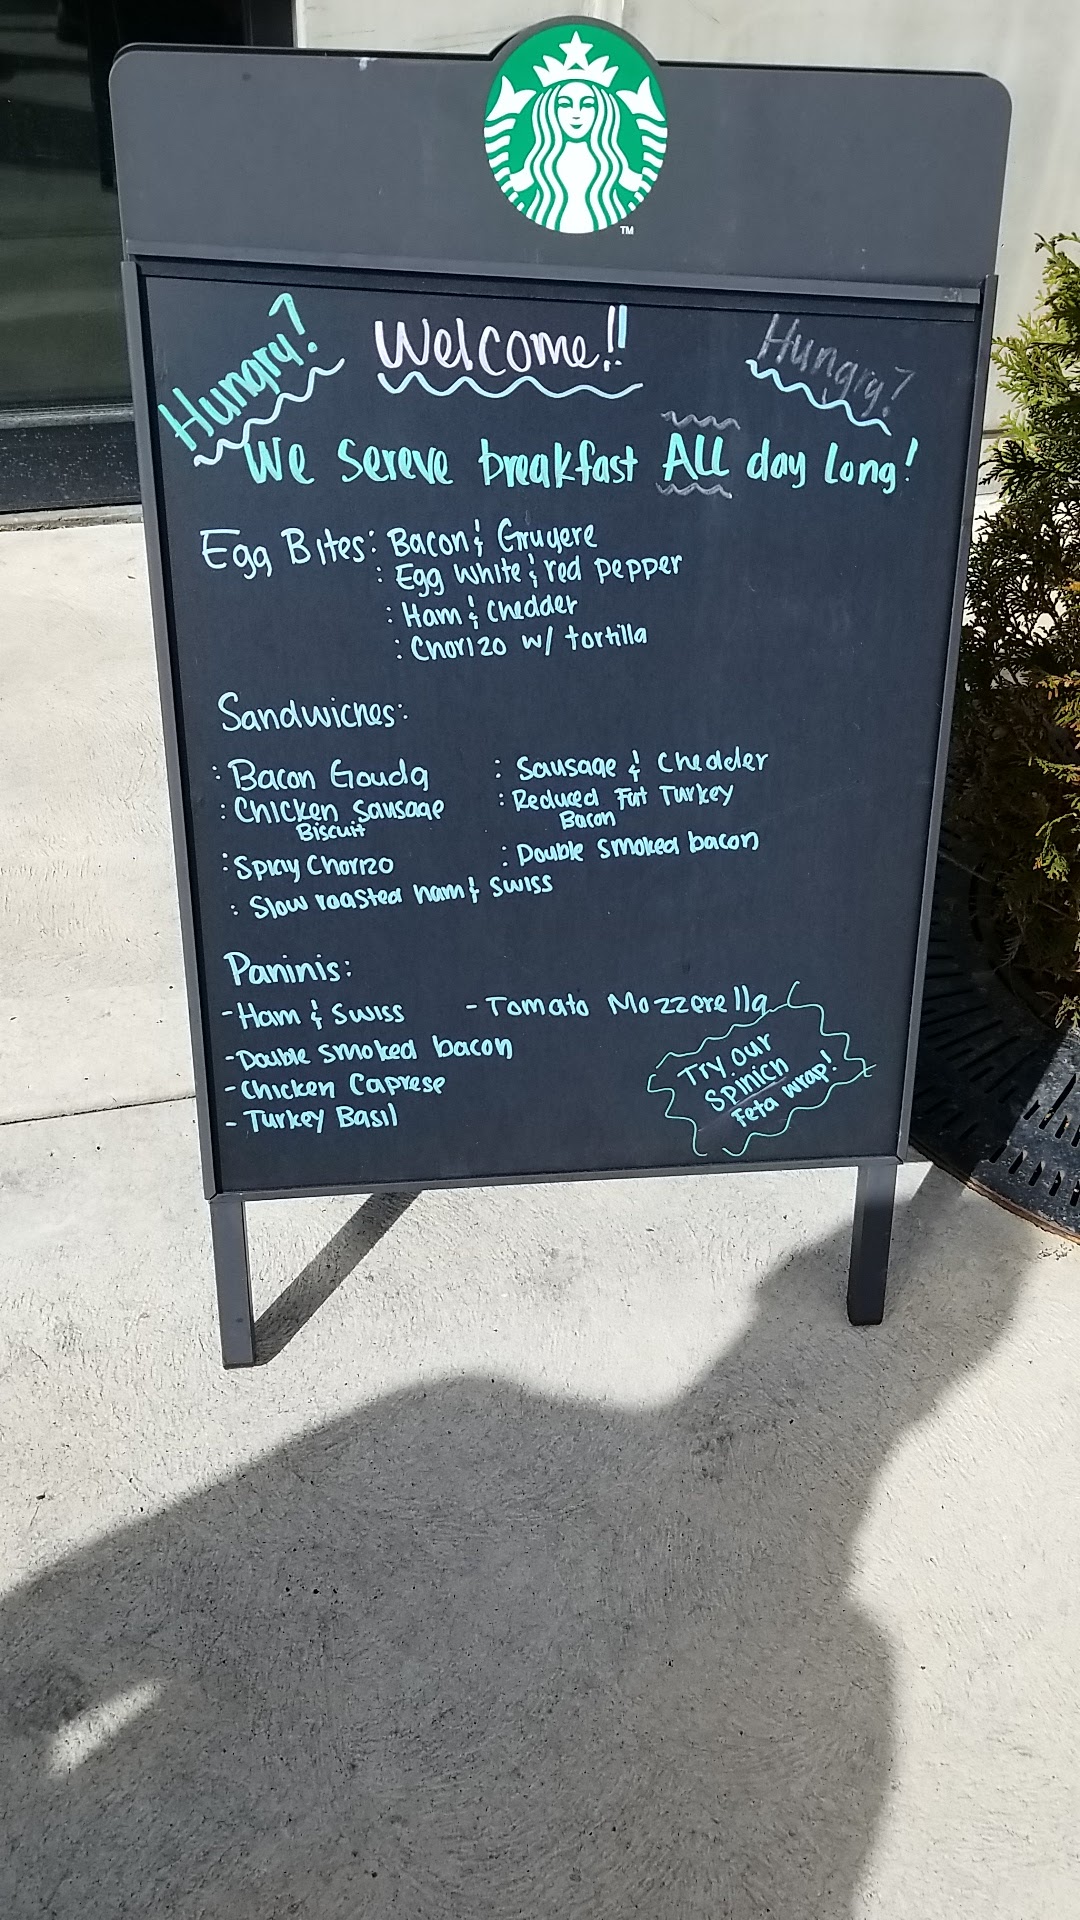 TM
Hungry? Welcome!! Hungry?
We Sereve breakfast ALL day Long!
Egg Bites: Bacon & Gruyere
: Egg White & red pepper
: Ham & Chedder
: Chorizo w/ tortilla
Sandwiches:
: Bacon Gouda : Sausage & Chedder
: Chicken Sausage Biscuit : Reduced Fat Turkey Bacon
: Spicy Chorizo : Double smoked bacon
: Slow roasted ham & swiss
Paninis:
- Ham & Swiss - Tomato Mozzerella
- Double smoked bacon
- Chicken Caprese
- Turkey Basil
Try our
Spinich
Feta wrap!